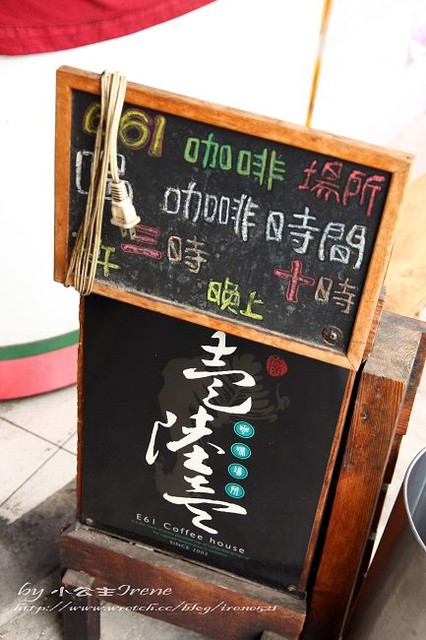 e61 咖啡 場所
喝 咖啡時間
午 三時 十時
晚上
壹陸壹
咖啡場所
E61 Coffee house
SINCE 2002
by 小公主Irene
http://www.wretch.cc/blog/irene521